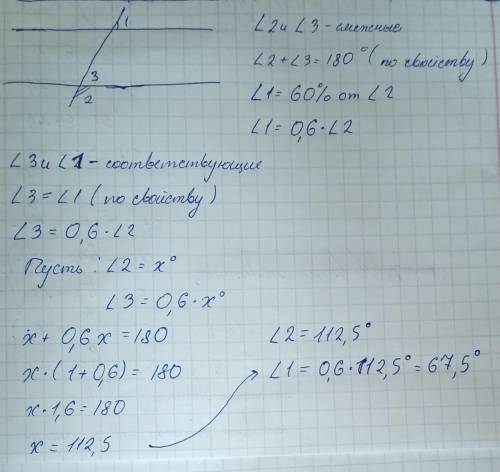 1
3
2
∠2 и ∠3 - смежные
∠2 + ∠3 = 180° (по свойству)
∠1 = 60% от ∠2
∠1 = 0,6 · ∠2
∠3 и ∠1 - соответствующие
∠3 = ∠1 (по свойству)
∠3 = 0,6 · ∠2
Пусть : ∠2 = x°
∠3 = 0,6 · x°
x + 0,6 x = 180
x · (1 + 0,6) = 180
x · 1,6 = 180
x = 112,5
∠2 = 112,5°
∠1 = 0,6 · 112,5° = 67,5°